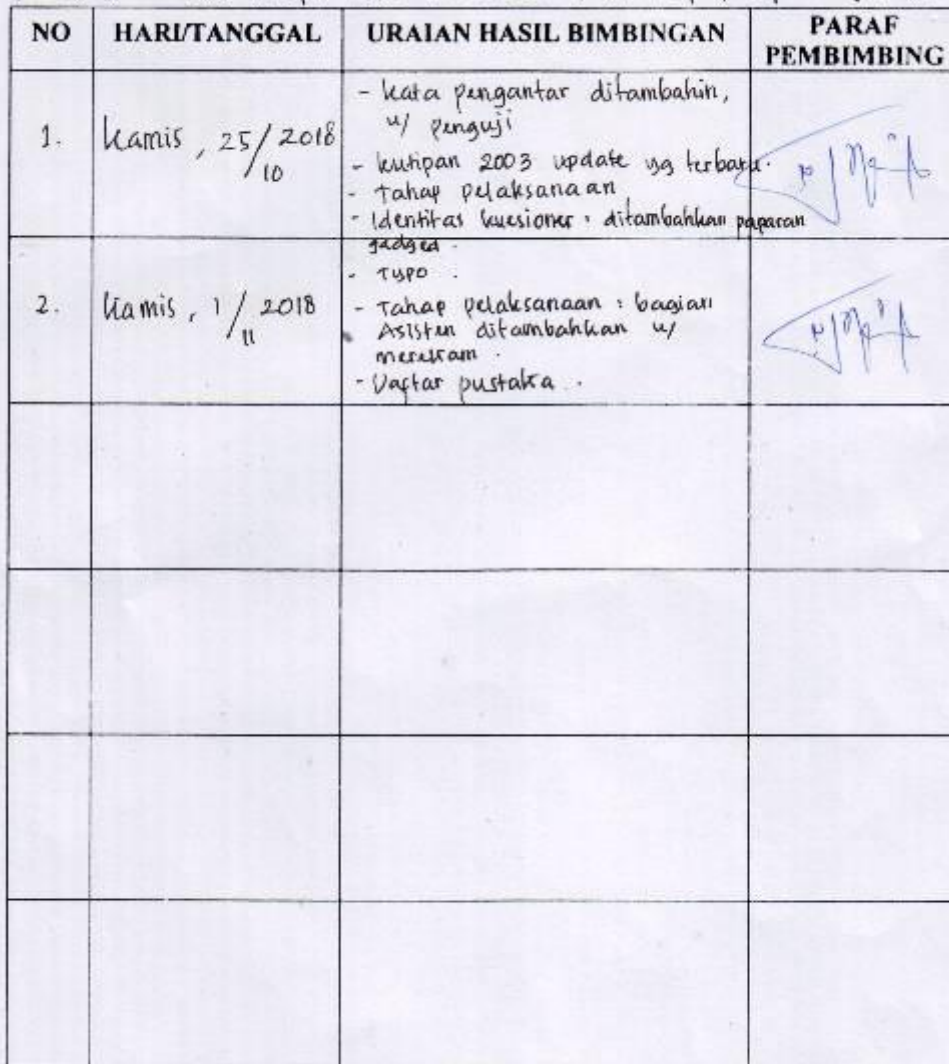 NO HARI/TANGGAL URAIAN HASIL BIMBINGAN PARAF PEMBIMBING
1. Kamis, 25/10 2018
- Kata pengantar ditambahin,
u/ penguji
- kutipan 2003 update yg terbaru.
- Tahap pelaksanaan
- Identitas kuesioner : ditambahkan paparan
gadged.
2. Kamis, 1/11 2018
- Typo.
- Tahap pelaksanaan : bagian
Asisten ditambahkan u/
merekam.
- Daftar pustaka.